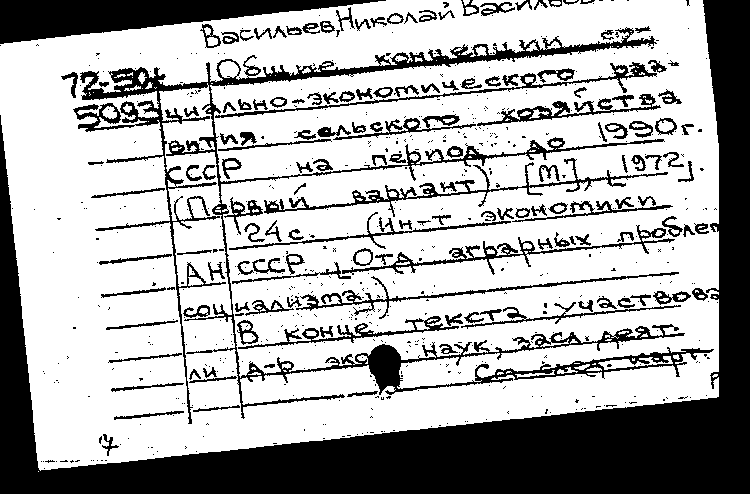 Васильев, Николай Васильев
72-50t Общие концепции со-
5093 циально-экономического раз-
вития сельского хозяйства
СССР на период до 1990г.
(Первый вариант). [М.], [1972].
24с. (Ин-т экономики
АН СССР. [Отд. аграрных проблем
социализма])
В конце текста: участвова
ли д-р эко наук, засл. деят.
См. след. карт.